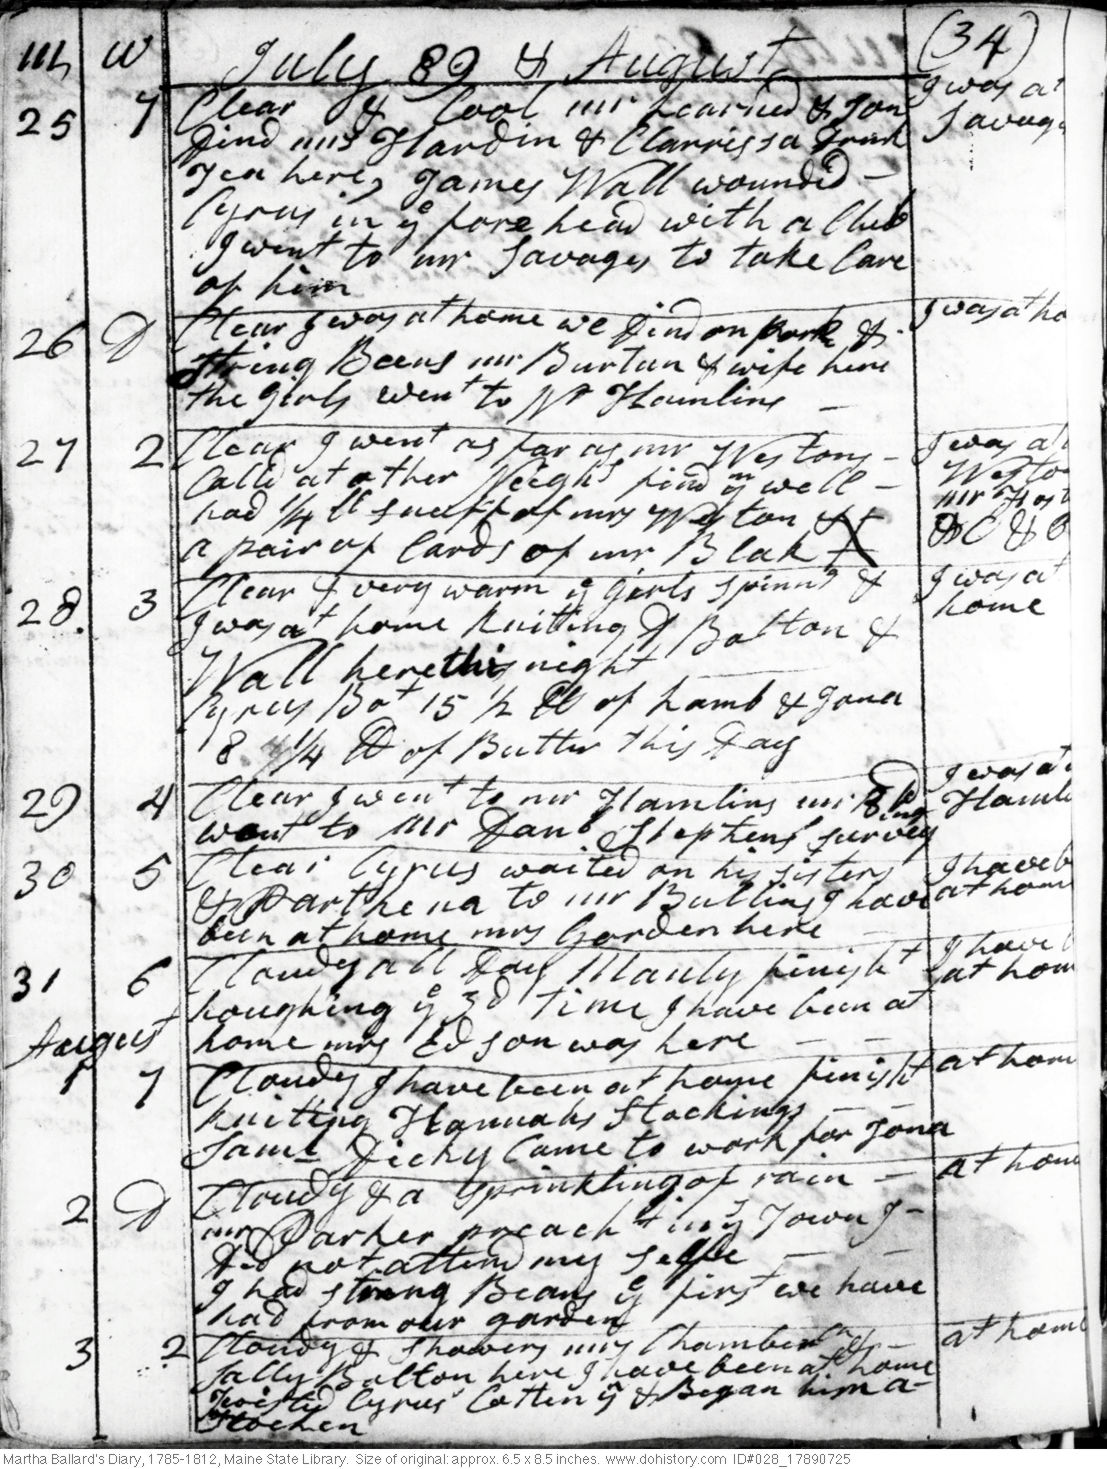 M W July 89 & August (34)
25 7 Clear & Cool mr Learned & Jon I was at
Dind mrs Hardin & Clarrissa Drank Savag
Tea here, James Wall wounded –
Cyrus in ye fore head with a Club
I went to mr Savages to take Care
of him
26 D Clear I was at home we Dind on Pork & I was at ho
string Beens mr Burtun & wife here
the girls went to Mr Hamlins –
27 2 Clear I went as far as mr Westons – I was at
Calld at other Neighs find ym well – Westo
had 1/4 lb snuff of mrs Weston & mr
a pair of Cards of mr Blak &C &
28. 3 Clear & very warm ye girls spinns & I was at
I was at home knitting Bolton & home
Wall here this night
Cyrus Bot 15 1/2 lb of Lamb & Jona
8 1/4 lb of Butter this Day
29 4 Clear I went to mr Hamlins mr I was at
went to Mr Danl Stephens survey Hamli
30 5 Clear Cyrus waited on his sisters I have b
& Parthena to mr Bullins I have at hom
been at home mrs Gorden here –
31 6 Cloudy all Day Manly finisht I have b
houghing ye 3d time I have been at at hom
August home mrs Edson was here – –
1 7 Cloudy I have been at home finisht at hom
knitting Hannahs Stockings – –
Saml Dicky Came to work for Jona
2 D Cloudy & a sprinkling of rain – at hom
mr Parker preacht in ye Town I –
Did not attend my selfe – –
I had string Beans ye first we have
had from our garden
3 2 Cloudy & showers mrs Chamberln & – at home
Sally Bolton here I have been at home
Twisted Cyrus Cotten yn & Began him a –
Stocken
Martha Ballard's Diary, 1785-1812, Maine State Library. Size of original: approx. 6.5 x 8.5 inches. www.dohistory.com ID#028_17890725